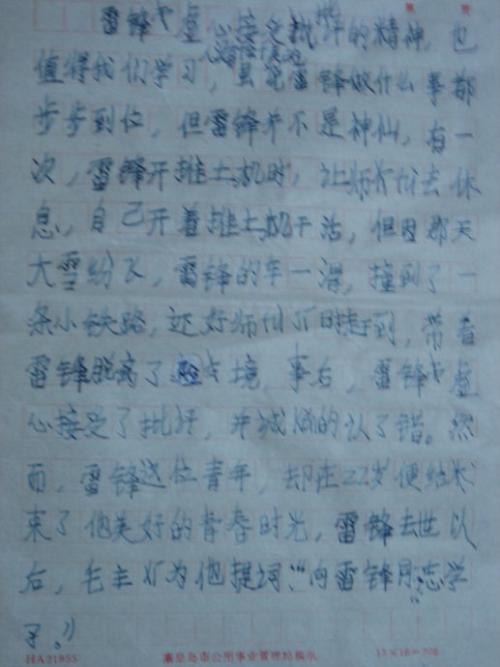 雷锋虚心接受批评的精神,也
值得我们学习,虽然雷锋做什么事都
步步到位,但雷锋并不是神仙,有一
次,雷锋开推土机时,让师傅去休
息,自己开着推土机干活,但因那天
大雪纷飞,雷锋的车一滑,撞到了一
条小铁路,还好师傅及时赶到,带着
雷锋脱离了境,事后,雷锋虚
心接受了批评,并诚恳的认了错。然
而,雷锋这位青年,却在22岁便结
束了他美好的青春时光,雷锋去世以
后,毛主席为他提词:“向雷锋同志学
习。”
HA21955
秦皇岛市公用事业管理局
15×16=